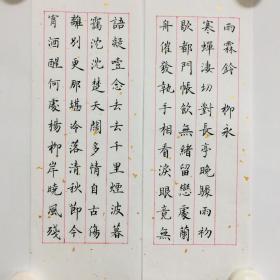 雨霖鈴　柳永
寒蟬淒切對長亭晚驟雨初
歇都門帳飲無緒留戀處蘭
舟催發執手相看淚眼竟無
語凝噎念去去千里煙波暮
靄沈沈楚天闊多情自古傷
離別更那堪冷落清秋節今
宵酒醒何處楊柳岸曉風殘